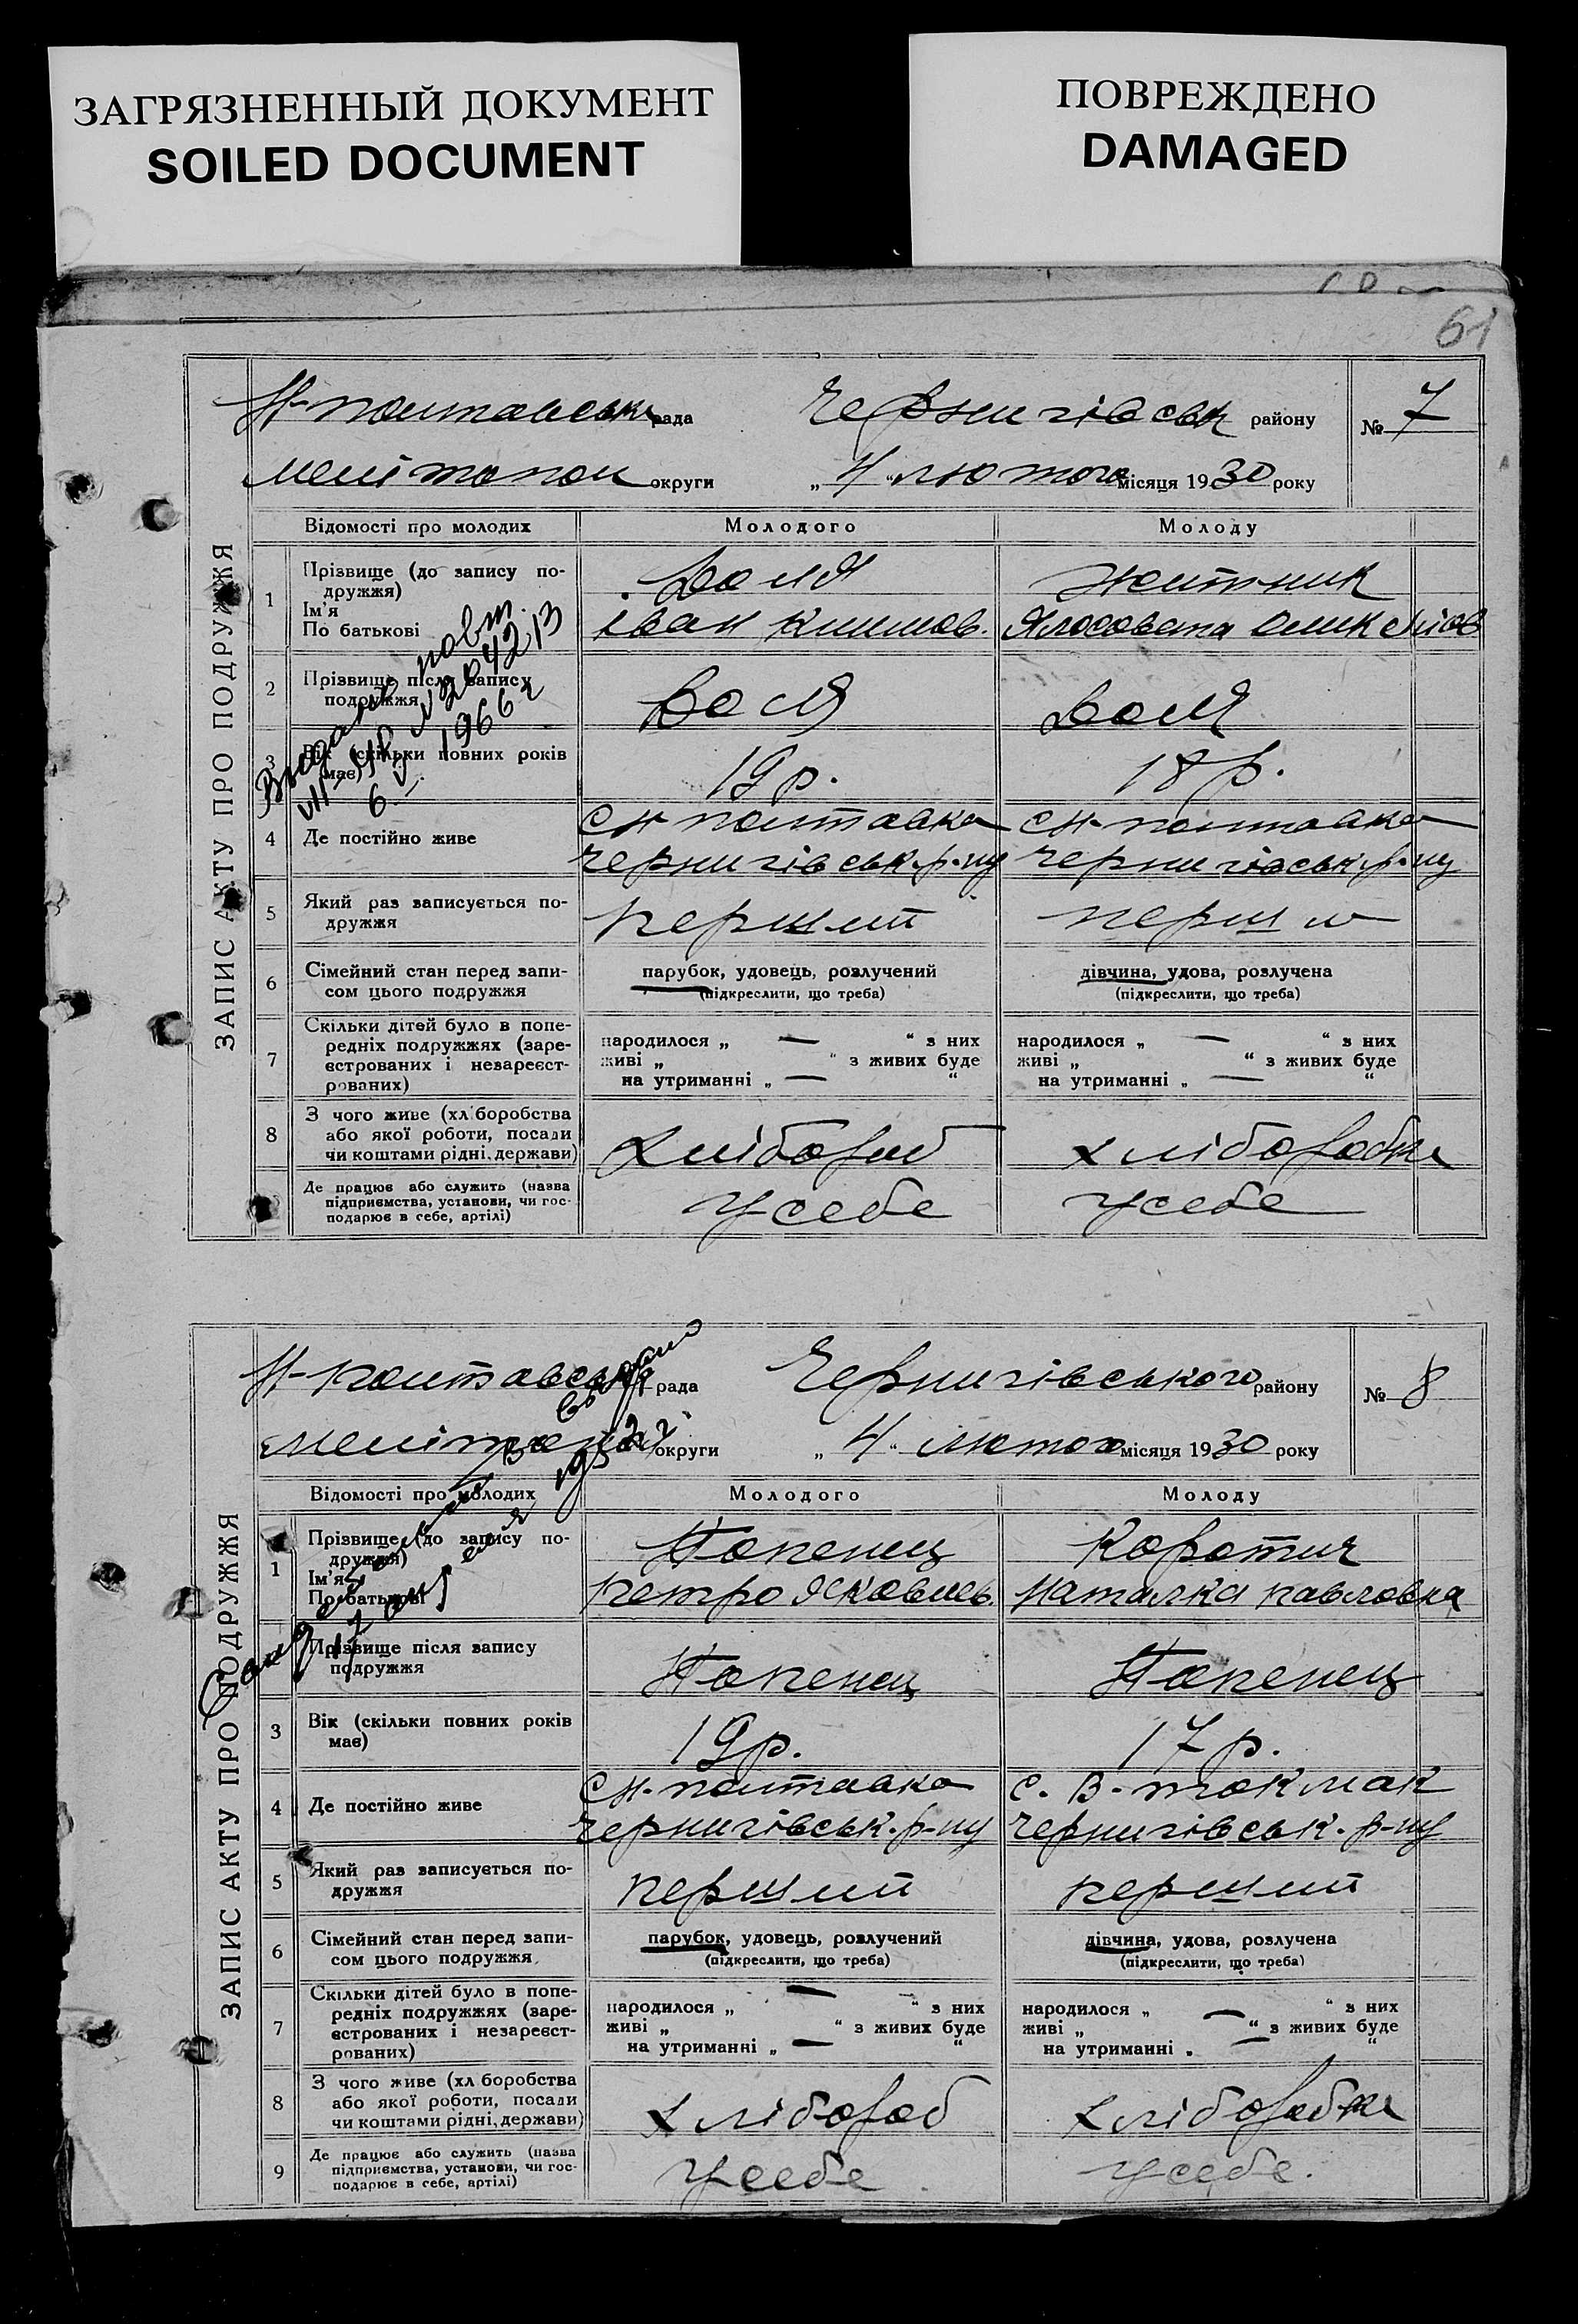 ЗАГРЯЗНЕННЫЙ ДОКУМЕНТ
SOILED DOCUMENT
ПОВРЕЖДЕНО
DAMAGED
61
ЗАПИС АКТУ ПРО ПОДРУЖЖЯ
Н-полтавська рада Чернигівськ району № 7
мелітопол округи „4“ лютого місяця 1930 року
Відомості про молодих Молодого Молоду
1 Прізвище (до запису по-
дружжя) Воля Житник
Ім'я
По батькові Іван Климов.
Видано повт.
1966 г
2 Прізвище після запису
подружжя Воля Воля
3 Вік (скільки повних років
має) 19 р. 18 р.
4 Де постійно живе С Н полтавка С Н-полтавка
Чернигівськ. р-ну Чернигівськ. р-ну
5 Який раз записується по-
дружжя перший перш
6 Сімейний стан перед запи-
сом цього подружжя
парубок, удовець, розлучений дівчина, удова, розлучена
(підкреслити, що треба) (підкреслити, що треба)
7 Скільки дітей було в попе-
редніх подружжях (заре-
єстрованих і незареєст-
рованих)
народилося „ — “ з них народилося „ — “ з них
живі „ “ з живих буде живі „ “ з живих буде
на утриманні „ — “ на утриманні „ — “
8 З чого живе (хліборобства
або якої роботи, посади
чи коштами рідні, держави) Хлібороб хліборобка
Де працює або служить (назва
підприємства, установи, чи гос-
подарює в себе, артілі) У себе У себе
ЗАПИС АКТУ ПРО ПОДРУЖЖЯ
Н-полтавська рада Чернигівського району № 8
округи „4“ лютого місяця 1930 року
Відомості про молодих Молодого Молоду
1 Прізвище (до запису по-
дружжя) Попенец Коротич
Ім'я
По батькові Петро Яковлев. Наталка Павловна
Прізвище після запису
подружжя Попенец Попенец
3 Вік (скільки повних років
має) 19 р. 17 р.
4 Де постійно живе С Н-полтавка С. В-токмак
Чернигівськ. р-ну Чернигівськ. р-ну
5 Який раз записується по-
дружжя перший перший
6 Сімейний стан перед запи-
сом цього подружжя
парубок, удовець, розлучений дівчина, удова, розлучена
(підкреслити, що треба) (підкреслити, що треба)
7 Скільки дітей було в попе-
редніх подружжях (заре-
єстрованих і незареєст-
рованих)
народилося „ — “ з них народилося „ — “ з них
живі „ “ з живих буде живі „ “ з живих буде
на утриманні „ — “ на утриманні „ — “
8 З чого живе (хліборобства
або якої роботи, посади
чи коштами рідні, держави) хлібороб хліборобка
9 Де працює або служить (назва
підприємства, установи, чи гос-
подарює в себе, артілі) У себе У себе.